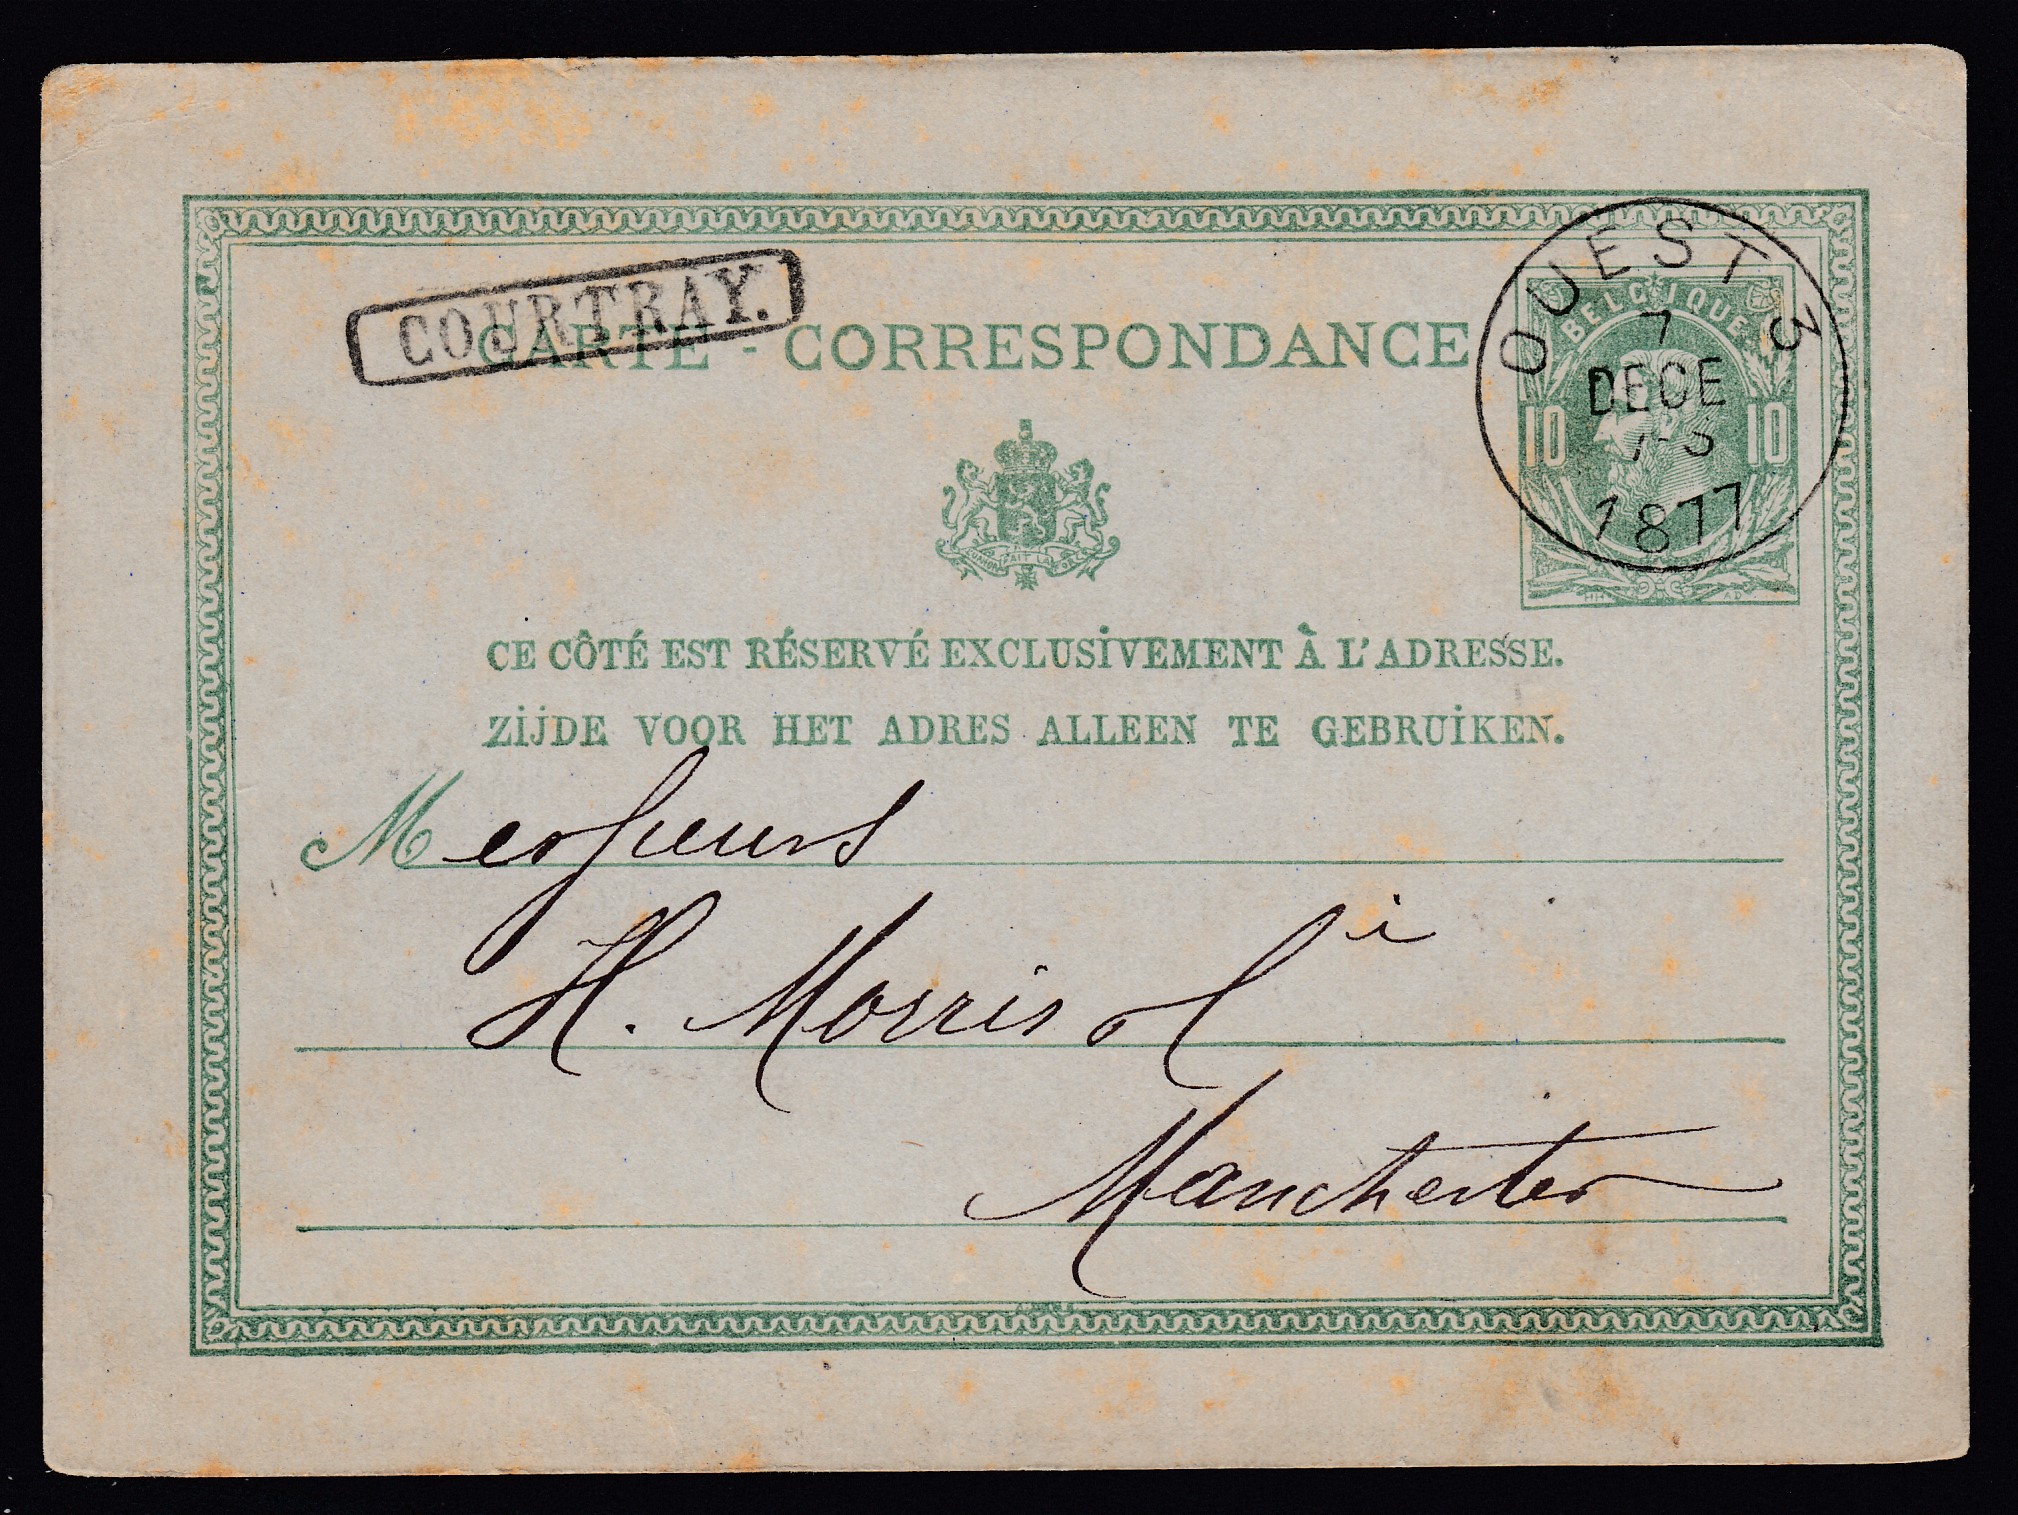 COURTRAY.
CARTE - CORRESPONDANCE
OUEST 3
7
DECE
1877
BELGIQUE
10 10
L'UNION FAIT LA FORCE
HH AD
CE CÔTÉ EST RÉSERVÉ EXCLUSİVEMENT À L'ADRESSE.
Zİ̇JDE VOOR HET ADRES ALLEEN TE GEBRUİKEN.
Messieurs
H. Morris & Ci
Manchester